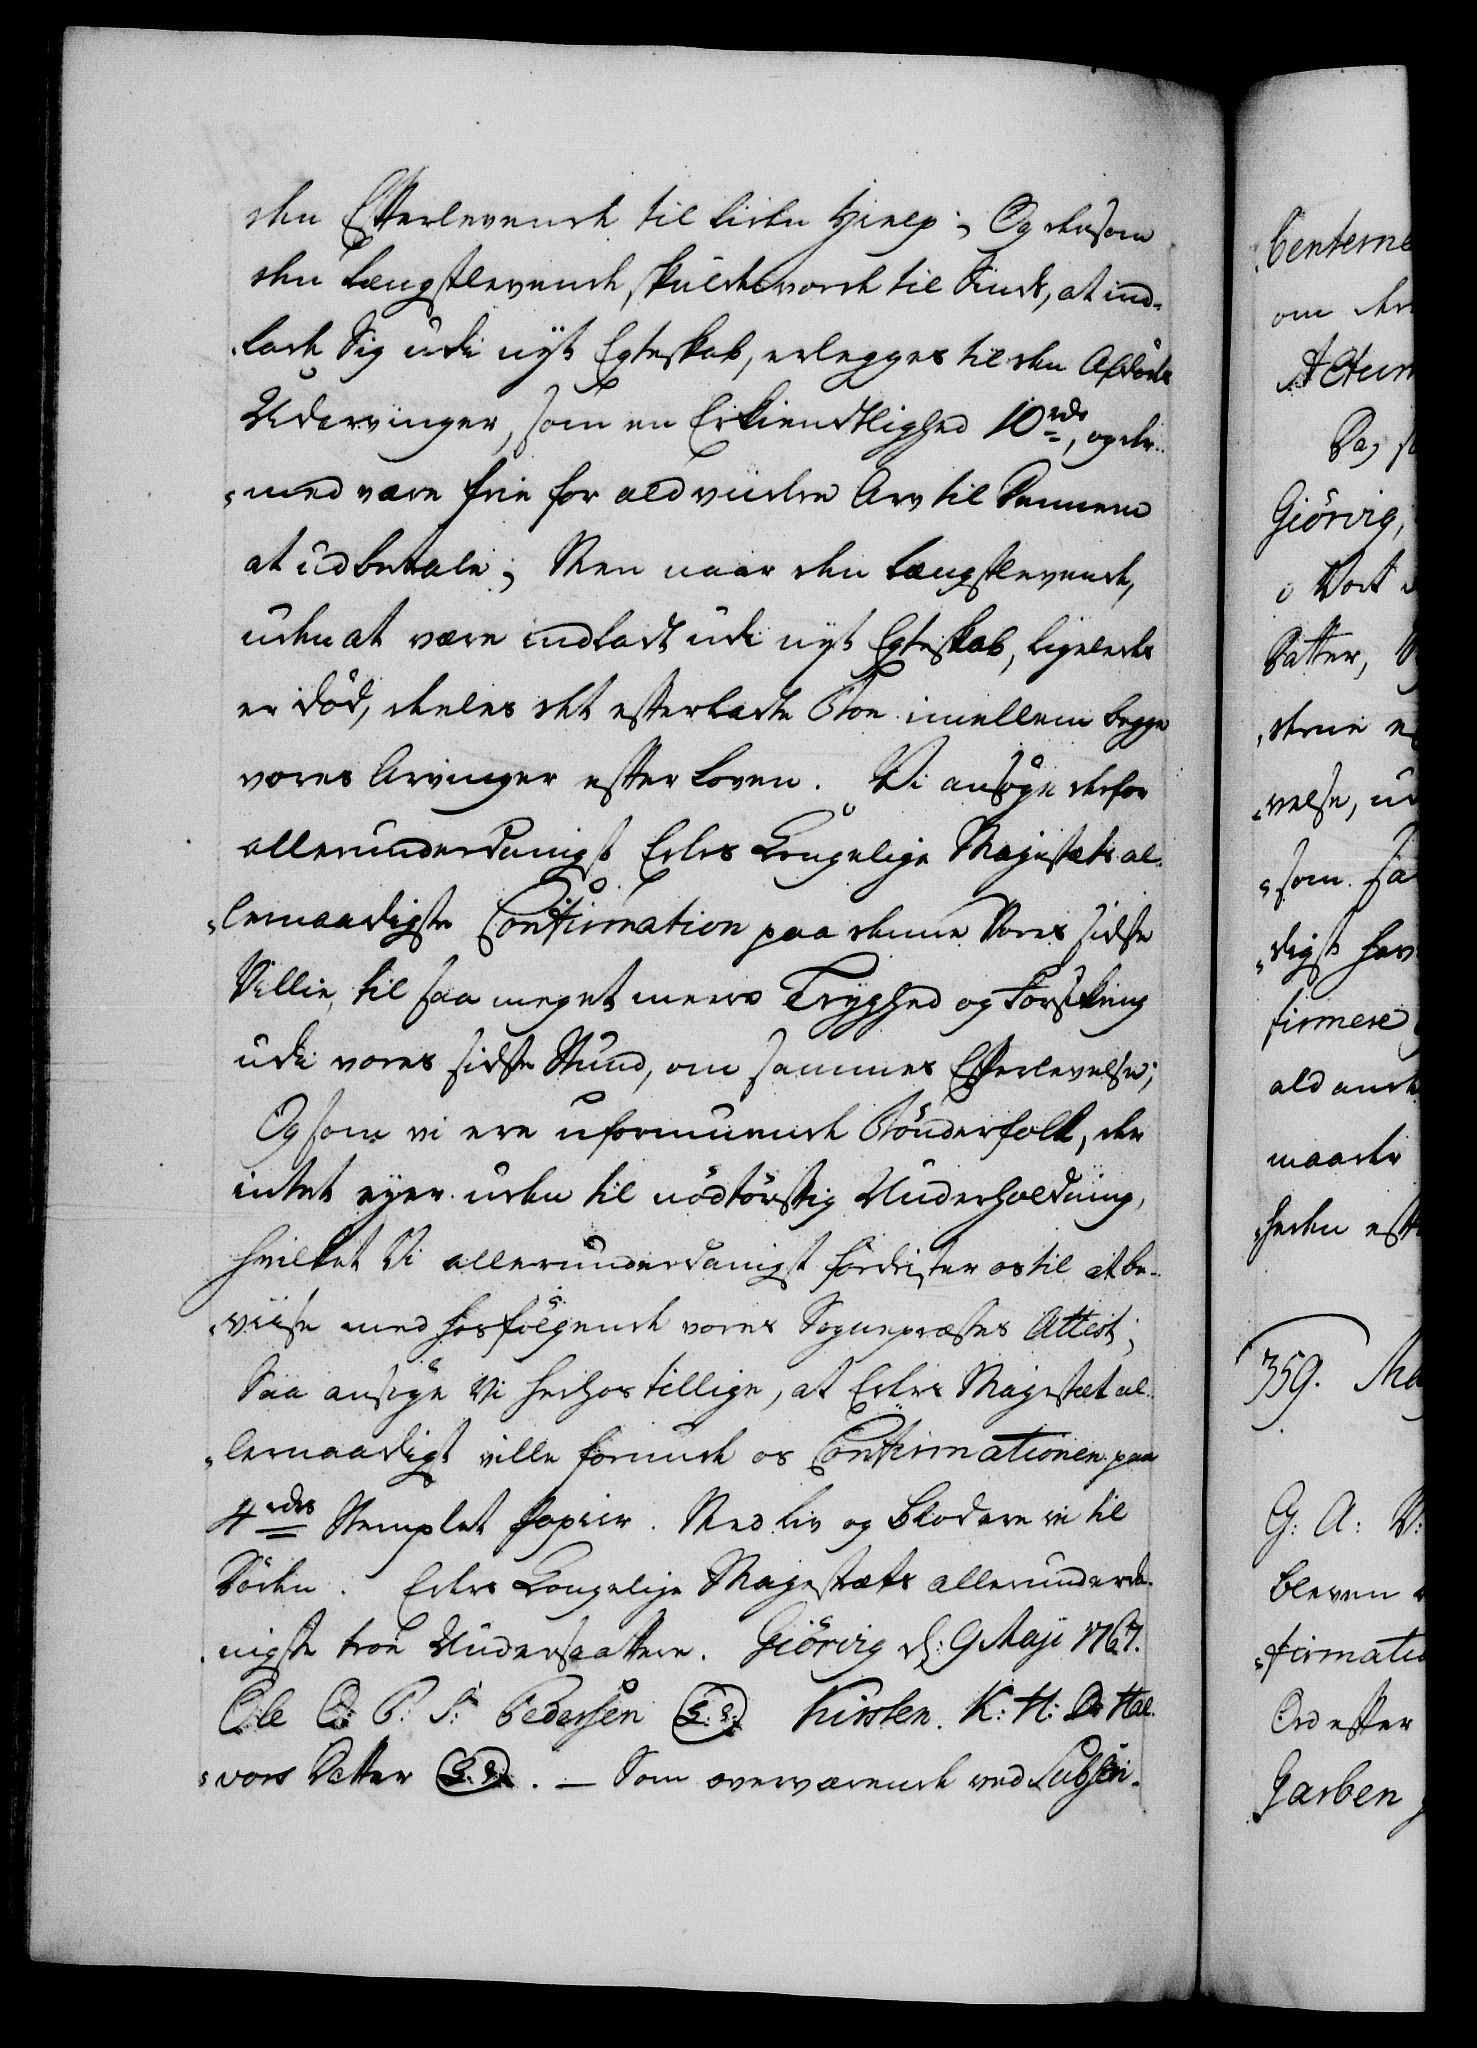 den Efterlevende til liden Hjelp; Og dersom
den Længstlevende, skulde vorde til Sinds, at ind-
lade Sig udi nyt Egteskab, erlegges til den Afdödes
Udarvinger, som en Erkiendtlighed 10 rdr, og der-
med være frie for ald viidre Arv til Dennem
at udbetale; Men naar den Længstlevende,
uden at være indladt udi nyt Egteskab, ligeledes
er död, deeles det efterladte Boe imellem begge
vores Arvinger efter Loven. Vi ansöge derfor
allerunderdanigst Eders Kongelige Majestæts al-
lernaadigste Confirmation paa denne Vores sidste
Villie, til saa meget meere Tryghed og Forsikring
udi vores sidste Stund, om sammes Efterlevelse;
Og som vi ere uformuende Bönderfolk, der
intet eyer uden til nödtörftig Underholdning,
hvilket Vi allerunderdanigst fordrister os til at be-
viise med hosfölgende vores Sognepræstes Attest;
Saa ansöge Vi herhos tillige, at Eders Majestæt al-
lernaadigst ville forunde os Confirmationen paa
4 rdrs Stemplet Papiir. Med Liv og Blod ere vi til
Döden. Eders Kongelige Majestæts allerunderda-
nigste troe Undersaattere. Giörvig d: 9 Maji 1767.
Ole O: P: S: Pedersen (L: S:) Kirsten K: H: D: Hal-
vors Datter (L: S:). – Som overværende ved Subscri-
benterne
om der
Actum
Da, s
Giörvig,
o Vort
Datter,
velse, ud
som sa
digst hav
firmere
ald ande
maader
heden eft
359. Ma
G: A: V:
bleven
firmatio
Ord efter
Garben